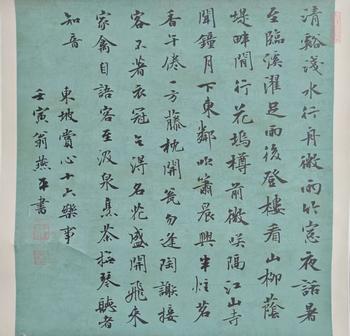 清谿淺水行舟微雨竹窓夜話暑
至臨溪濯足雨後登樓看山柳蔭
堤畔閒行花塢樽前微笑隔江山寺
聞鐘月下東鄰吹簫晨興半炷茗
香午倦一方藤枕開甕勿逢陶謝接
客不著衣冠乞得名花盛開飛來
家禽自語客至汲泉烹茶撫琴聽者
知音
東坡賞心十六樂事
壬寅翁燕平書